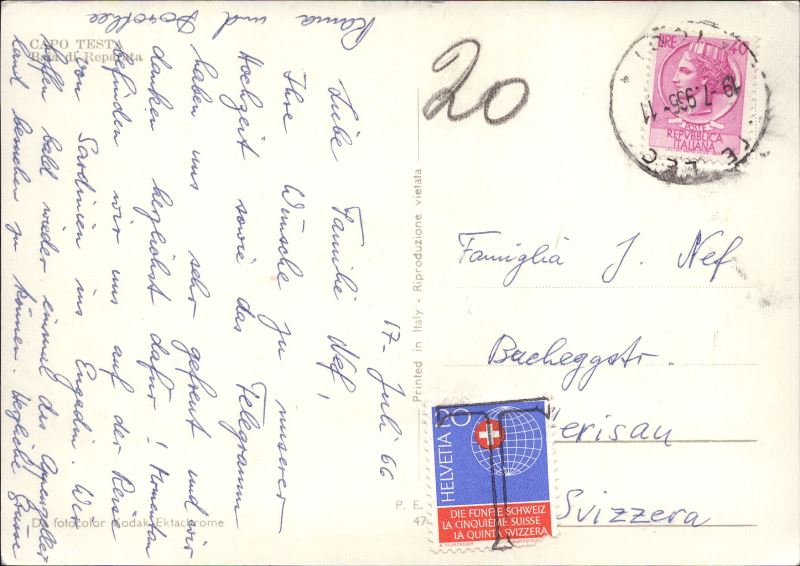 CAPO TESTA
Baia di Reparata
17. Juli 66
Liebe Familie Nef!
Ihre Wünsche zu unserer
Hochzeit sowie das Telegramm
haben uns sehr gefreut und wir
danken herzlichst dafür! Momentan
befinden wir uns auf der Reise
von Sardinien ins Engadin. Wir
hoffen bald wieder einmal das Appenzeller-
land besuchen zu können. Herzliche Grüsse
und Dorothee
Da fotocolor Kodak Ektachrome
Printed in Italy - Riproduzione vietata
P. E.
47
20
LIRE 40
POSTE
REPVBBLICA
ITALIANA
19-7.966-11
Famiglia J. Nef
Bacheggstr.
Herisau
Svizzera
HELVETIA 20
DIE FÜNFTE SCHWEIZ
LA CINQUIEME SUISSE
LA QUINTA SVIZZERA